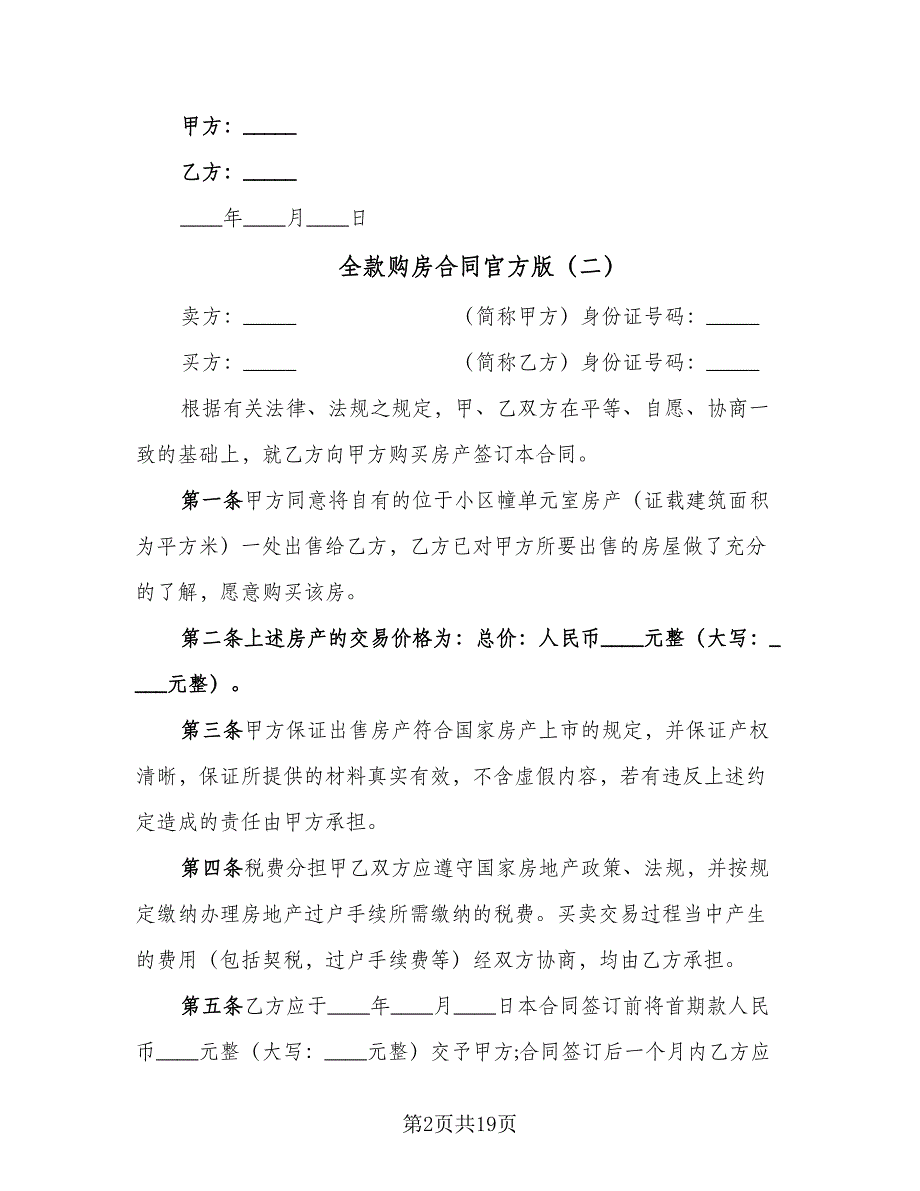 甲方：_____
乙方：_____
____年____月____日
全款购房合同官方版（二）
卖方：_____ （简称甲方）身份证号码：_____
买方：_____ （简称乙方）身份证号码：_____
根据有关法律、法规之规定，甲、乙双方在平等、自愿、协商一
致的基础上，就乙方向甲方购买房产签订本合同。
第一条甲方同意将自有的位于小区幢单元室房产（证载建筑面积
为平方米）一处出售给乙方，乙方已对甲方所要出售的房屋做了充分
的了解，愿意购买该房。
第二条上述房产的交易价格为：总价：人民币____元整（大写：_
___元整）。
第三条甲方保证出售房产符合国家房产上市的规定，并保证产权
清晰，保证所提供的材料真实有效，不含虚假内容，若有违反上述约
定造成的责任由甲方承担。
第四条税费分担甲乙双方应遵守国家房地产政策、法规，并按规
定缴纳办理房地产过户手续所需缴纳的税费。买卖交易过程当中产生
的费用（包括契税，过户手续费等）经双方协商，均由乙方承担。
第五条乙方应于____年____月____日本合同签订前将首期款人民
币____元整（大写：____元整）交予甲方;合同签订后一个月内乙方应
第2页共19页